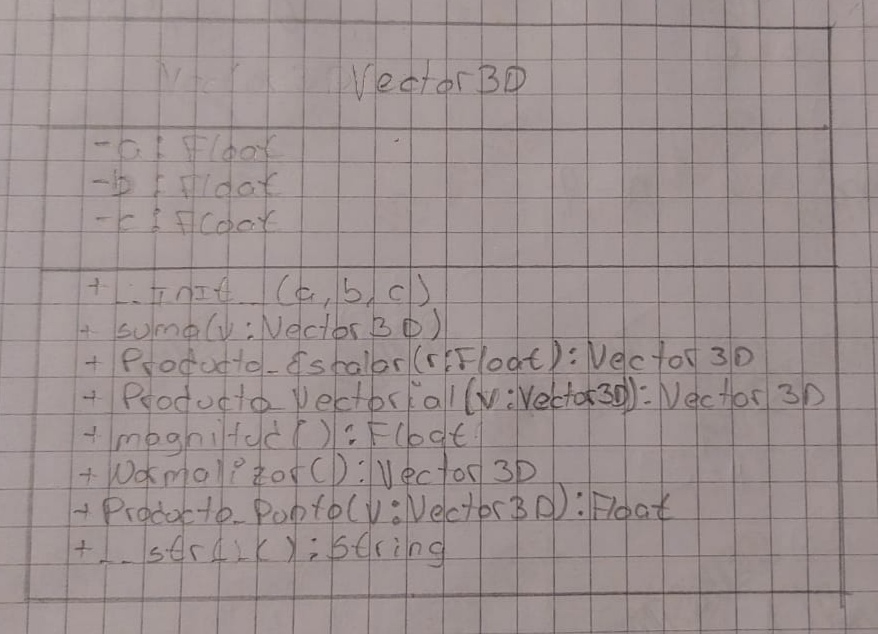 Vector 3D
- a : Float
- b : Float
- c : Float
+ __init__(a, b, c)
+ suma(v : Vector 3D)
+ Producto_Escalar(r : Float) : Vector 3D
+ Producto_Vectorial(v : Vector3D) : Vector 3D
+ magnitud() : Float
+ Normalizar() : Vector 3D
+ Producto_Punto(v : Vector 3D) : Float
+ __str__() : String